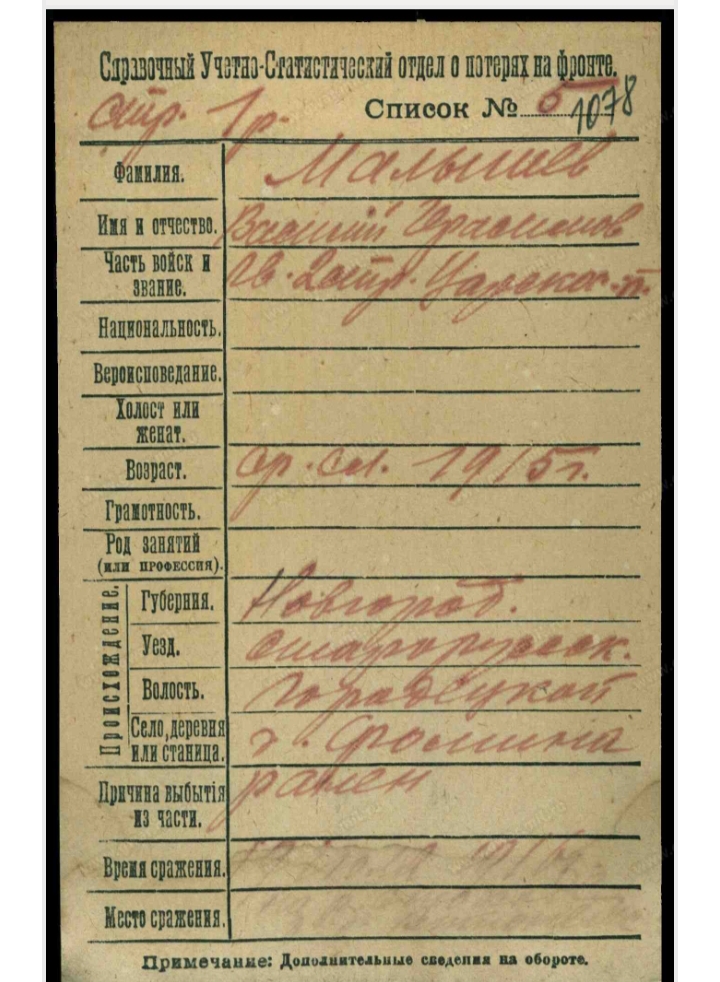 Справочный Учетно-Статистический отдел о потерях на фронте.
стр. 1р. Список № 5 1078
Фамилия. Малышев
Имя и отчество. Василий Герасимов
Часть войск и звание. Гв. 2 стр. Царскос. п.
Национальность.
Вероисповедание.
Холост или женат.
Возраст. ср. сл. 1915 г.
Грамотность.
Род занятий
(или профессия).
Происхождение.
Губерния. Новгород.
Уезд. старорусск.
Волость.
Село, деревня или станица. д. Фомина
Причина выбытія из части. ранен
Время сражения. 1916
Место сражения.
Примечание: Дополнительные сведения на обороте.